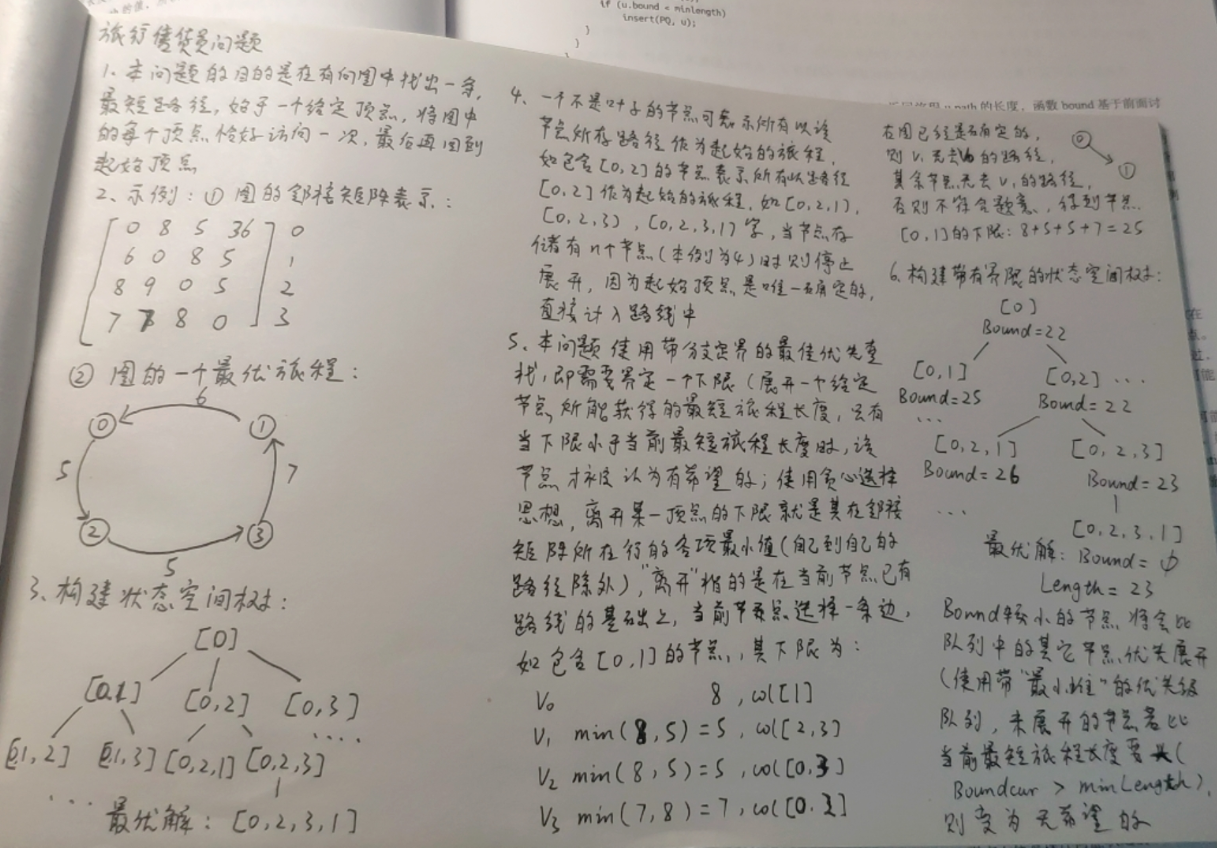 if (u.bound < minlength)
insert(PQ, u);
}
}
}
的长度。函数 bound 基于前面讨
旅行售货员问题
1. 本问题的目的是在有向图中找出一条
最短路径,始于一个给定顶点,将图中
的每个顶点恰好访问一次,最后再回到
起始顶点
2、示例:① 图的邻接矩阵表示:
0 8 5 36 0
6 0 8 5 1
8 9 0 5 2
7 8 0 3
② 图的一个最优旅程:
6
0 1
5 7
2 3
5
3、构建状态空间树:
[0]
[0,1] [0,2] [0,3]
[1,2] [1,3] [0,2,1] [0,2,3] ....
... 最优解: [0,2,3,1]
4、一个不是叶子的节点可表示所有以该
节点所存路径作为起始的旅程,
如包含[0,2]的节点表示所有以路径
[0,2]作为起始的旅程,如[0,2,1],
[0,2,3),[0,2,3,1]等,当节点存
储有n个节点(本例为4)时则停止
展开,因为起始顶点是唯一确定的,
直接计入路线中
5、本问题使用带分支定界的最佳优先查
找,即需要界定一个下限(展开一个给定
节点所能获得的最短旅程长度,只有
当下限小于当前最短旅程长度时,该
节点才被认为有希望的;使用贪心选择
思想,离开某一顶点的下限就是其在邻接
矩阵所在行的各项最小值(自己到自己的
路径除外),"离开"指的是在当前节点已有
路线的基础上,当前节点选择一条边,
如包含[0,1]的节点,其下限为:
V0 8 , col[1]
V1 min(8,5)=5 , col[2,3]
V2 min(8,5)=5 , col[0,3]
V3 min(7,8)=7 , col[0,2]
在图已经是确定的,
则V1无去V0的路径,
其余节点无去V1的路径,
否则不符合题意,得到节点
[0,1]的下限:8+5+5+7=25
0
1
6、构建带有界限的状态空间树:
[0]
Bound=22
[0,1] [0,2] ...
Bound=25 Bound=22
...
[0,2,1] [0,2,3]
Bound=26 Bound=23
...
[0,2,3,1]
最优解: Bound=
Length=23
Bound较小的节点将会比
队列中的其它节点优先展开
(使用带"最小堆"的优先级
队列,未展开的节点若比
当前最短旅程长度要大(
Boundcur > minLength),
则变为无希望的